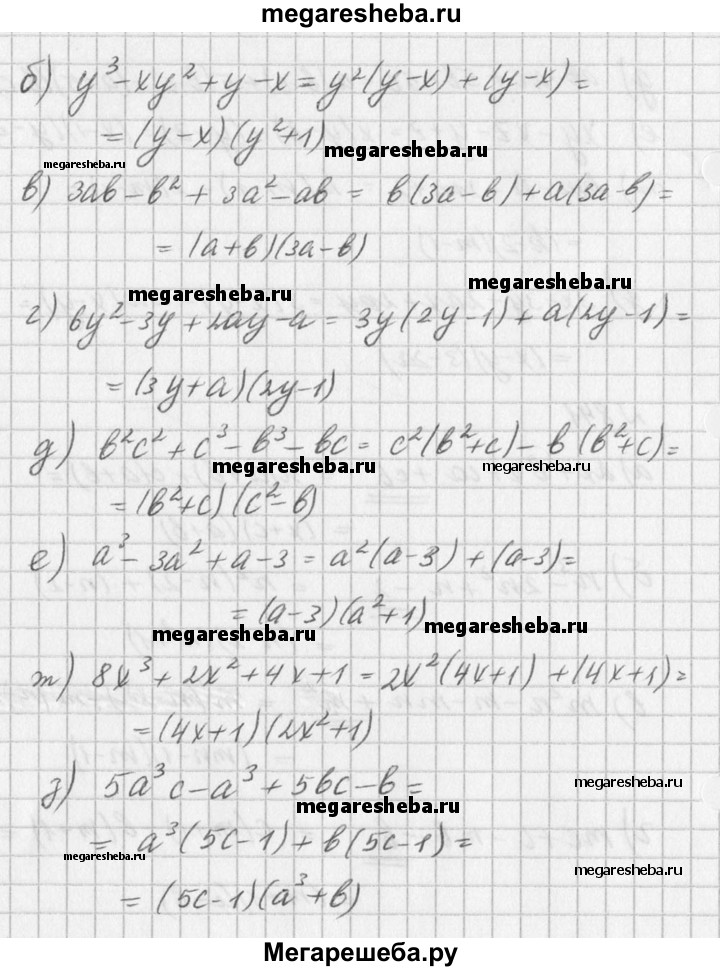 megaresheba.ru
б) y³ - xy² + y - x = y²(y-x) + (y-x) =
= (y-x)(y²+1)
megaresheba.ru
megaresheba.ru
в) 3ab - b² + 3a² - ab = b(3a-b) + a(3a-b) =
= (a+b)(3a-b)
megaresheba.ru
megaresheba.ru
г) 6y² - 3y + 2ay - a = 3y(2y-1) + a(2y-1) =
= (3y+a)(2y-1)
д) b²c² + c³ - b³ - bc = c²(b²+c) - b(b²+c) =
megaresheba.ru
megaresheba.ru
= (b²+c)(c²-b)
е) a³ - 3a² + a - 3 = a²(a-3) + (a-3) =
= (a-3)(a²+1)
megaresheba.ru
megaresheba.ru
ж) 8x³ + 2x² + 4x + 1 = 2x²(4x+1) + (4x+1) =
= (4x+1)(2x²+1)
з) 5a³c - a³ + 5bc - b =
megaresheba.ru
megaresheba.ru
= a³(5c-1) + b(5c-1) =
megaresheba.ru
megaresheba.ru
= (5c-1)(a³+b)
Мегарешеба.ру